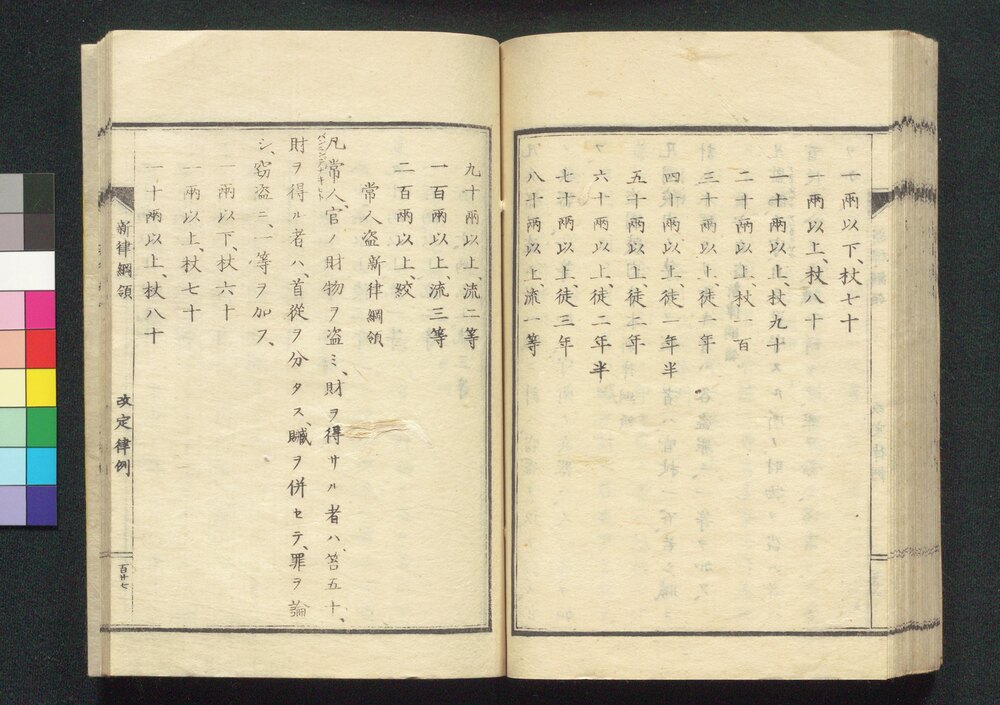 一兩以下、杖七十
一兩以上、杖八十
一十兩以上、杖九十
二十兩以上、杖一百
三十兩以上、徒一年
四十兩以上、徒一年半
五十兩以上、徒二年
六十兩以上、徒二年半
七十兩以上、徒三年
八十兩以上、流一等
九十兩以上、流二等
一百兩以上、流三等
二百兩以上、絞
常人盗 新律綱領
凡常人、官ノ財物ヲ盗ミ、財ヲ得サル者ハ、笞五十、
財ヲ得ル者ハ、首從ヲ分タス、贓ヲ併セテ、罪ヲ論
シ、窃盗ニ、一等ヲ加フ、
一兩以下、杖六十
一兩以上、杖七十
一十兩以上、杖八十
新律綱領 改定律例
百廿七